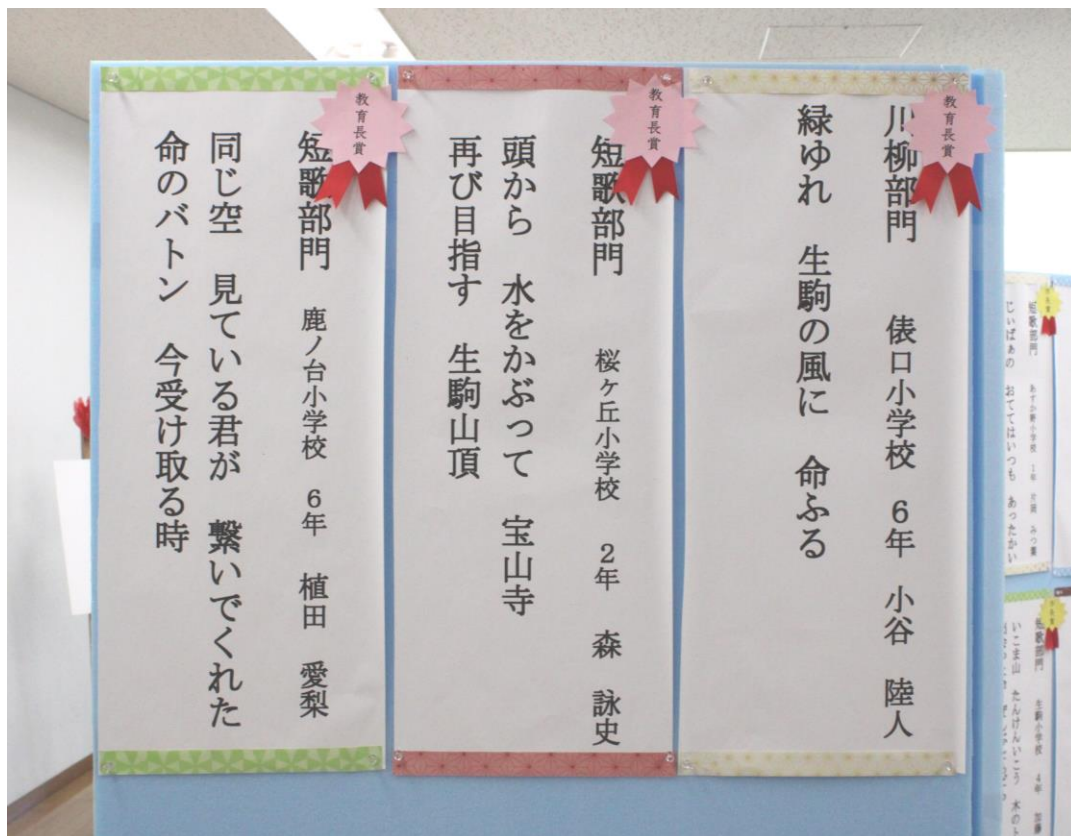 教育長賞
川柳部門 俵口小学校 6年 小谷 陸人
緑ゆれ 生駒の風に 命ふる
教育長賞
短歌部門 桜ヶ丘小学校 2年 森 詠史
頭から 水をかぶって 宝山寺
再び目指す 生駒山頂
教育長賞
短歌部門 鹿ノ台小学校 6年 植田 愛梨
同じ空 見ている君が 繋いでくれた
命のバトン 今受け取る時
短歌部門 あすか野小学校 1年 片岡 みつ葉
じいばぁの おててはいつも あったかい
短歌部門 生駒小学校 4年 加藤
いこま山 たんけんいこう 木の